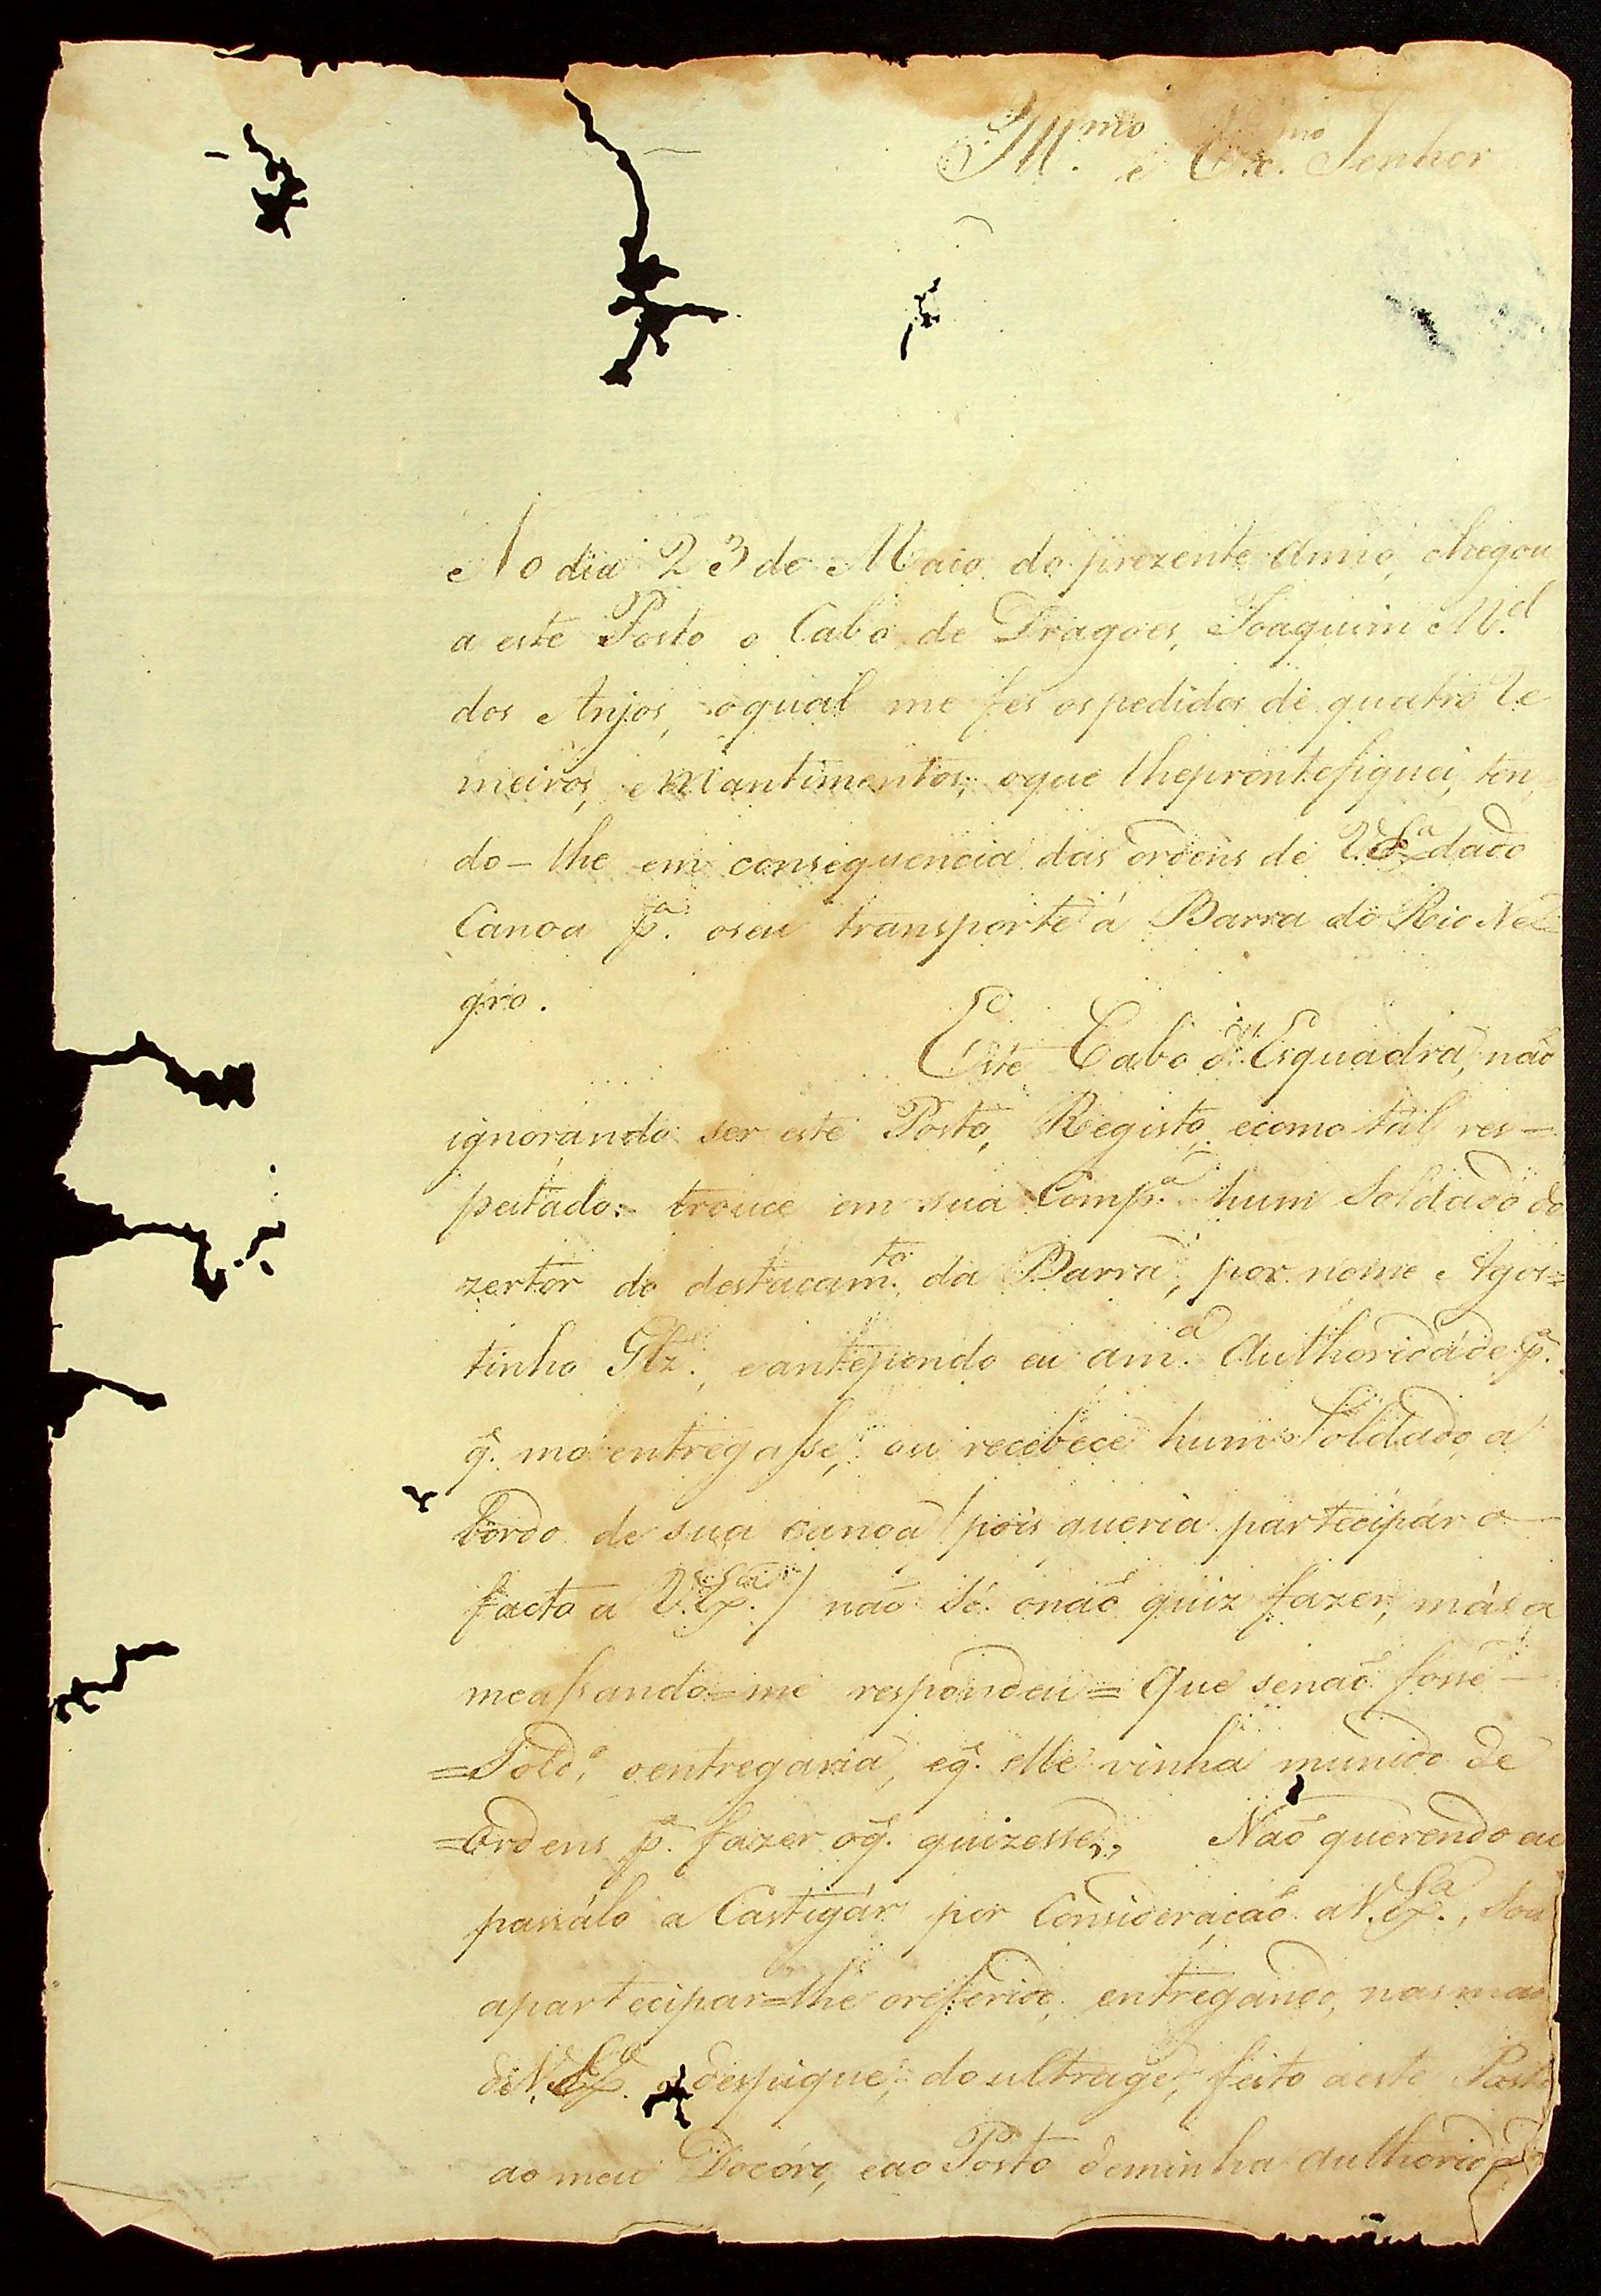 Ill.mo e Ex.mo Senhor
No dia 23 de Maio do prezente Anno, chegou
a este Posto o Cabo de Dragoes, Joaquim M.el
dos Anjos, oqual me fes os pedidos de quatro Re
meiros, e Mantimentos; oque lheprontefiquei, ten,
do-lhe em consequencia das ordens de V. Ex.a dado
Canoa p.a oseu transporte á Barra do Rio Ne=
gro.
Este Cabo d'Esquadra, não
ignorando ser este Posto, Registo, ecomo tal res=
peitado:- trouce em sua Comp.a hum Soldado de
zertor do destacam.to da Barra, por nome Agos=
tinho Glz., eantepondo eu am.a Authoridade p.a
q. mo entregasse, ou recebece hum Soldado, a
bordo de sua canoa /pois queria partecipár o
facto a V. Ex.a/ não só onaõ quiz fazer, más a
meassando=me respondeu= Que senaõ fosse
=Sold.o, oentregaria, eq. elle vinha munido de
=Ordens p.a fazer oq. quizesse,, Naõ querendo eu
passálo a Castigár por Consideraçaõ aV. Ex.a, Sou
apartecipar=lhe oreferido, entregando, nas mao
deV. Ex.a o despique, do ultrage, feito aeste Posto
ao meu Decóro, eao Posto deminha authorid